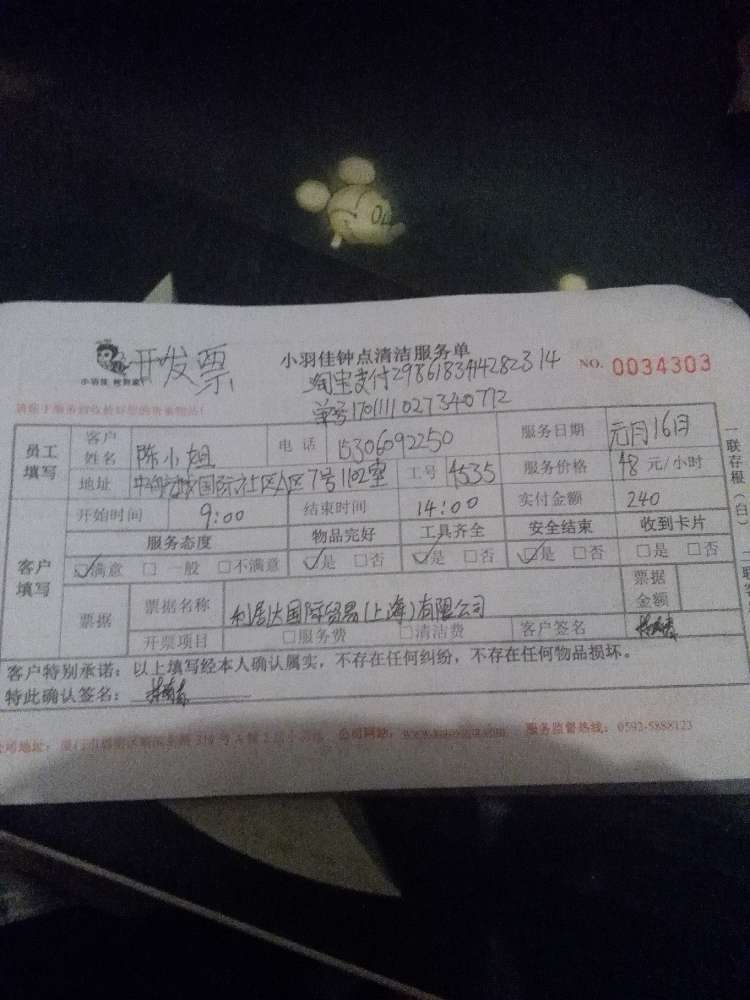 开发票
小羽佳钟点清洁服务单
NO. 0034303
小羽佳
淘宝支付2986183414282314
单号170111027340772
员工填写 客户姓名 陈小姐 电话 15306092250 服务日期 元月16日
地址 国际社区A区7号1102室 工号 4535 服务价格 48 元/小时
开始时间 9:00 结束时间 14:00 实付金额 240
客户填写 服务态度 物品完好 工具齐全 安全结束 收到卡片
☑满意 □一般 □不满意 ☑是 □否 ☑是 □否 ☑是 □否 □是 □否
票据 票据名称 利居达国际贸易(上海)有限公司 票据金额
开票项目 □服务费 □清洁费 客户签名
客户特别承诺：以上填写经本人确认属实，不存在任何纠纷，不存在任何物品损坏。
特此确认签名：
公司地址： 公司网站： 服务监督热线：0592-5888123
一联存根(白)